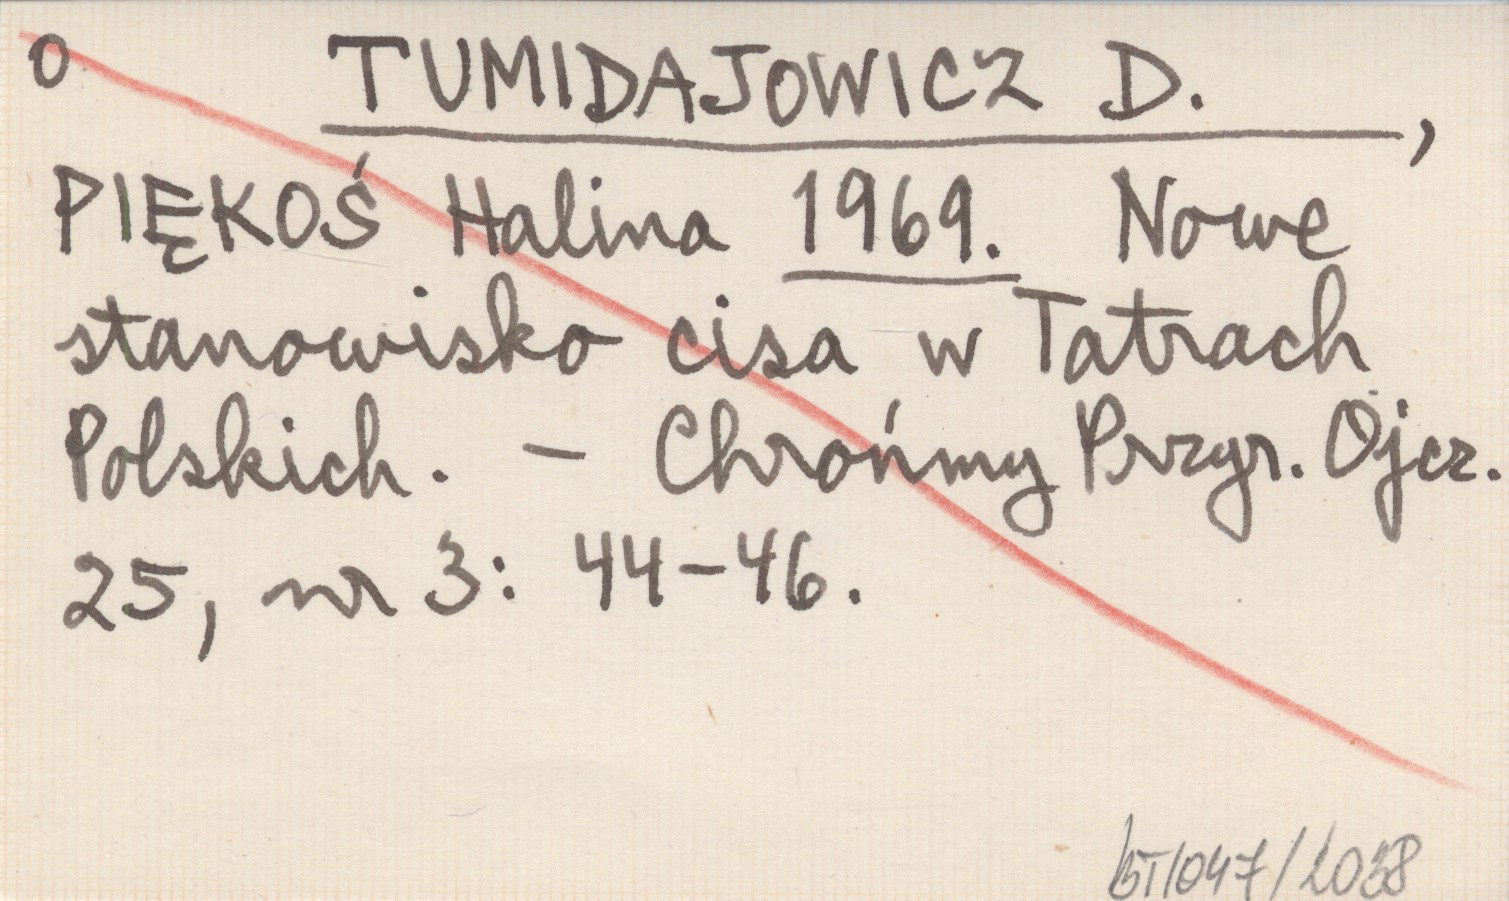 o TUMIDAJOWICZ D.,
PIĘKOŚ Halina 1969. Nowe
stanowisko cisa w Tatrach
Polskich. – Chrońmy Przyr. Ojcz.
25, nr 3: 44–46.
BT/047/2038